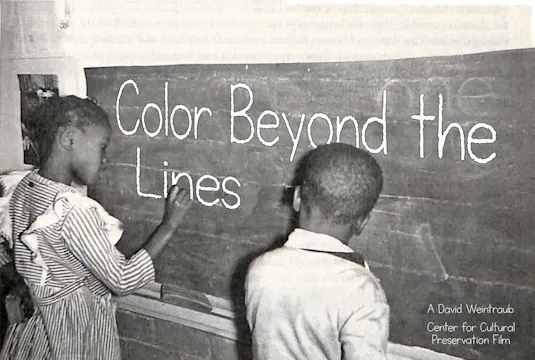 one
Color Beyond the
Lines
A David Weintraub
Center for Cultural
Preservation Film